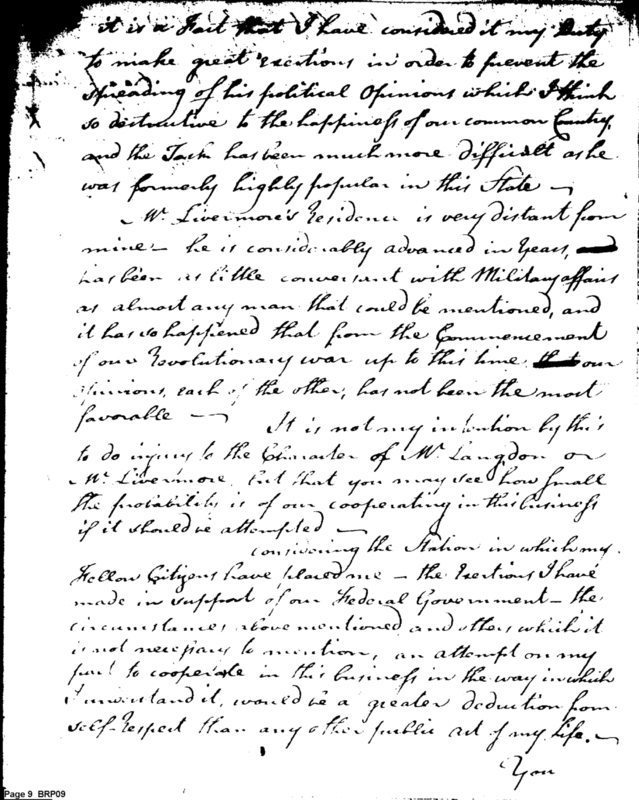 it is a Fact that I have considered it my Duty
to make great exertions in order to prevent the
spreading of his political Opinions which I think
so destructive to the happiness of our common Country,
and the Task has been much more difficult as he
was formerly highly popular in this State —
Mr. Livermore's Residence is very distant from
mine — he is considerably advanced in Years,
has been as little conversant with Military affairs
as almost any man that could be mentioned, and
it has so happened that from the Commencement
of our Revolutionary war up to this time our
opinions, each of the other, has not been the most
favorable — It is not my intention by this
to do injury to the Character of Mr. Langdon or
Mr. Livermore, but that you may see how small
the probability is of our cooperating in this business
if it should be attempted —
considering the Station in which my
Fellow Citizens have placed me — the Exertions I have
made in support of our Federal Government — the
circumstances above mentioned and others which it
is not necessary to mention, an attempt on my
part to cooperate in this business in the way in which
I understand it, would be a greater deduction from
self-Respect than any other public act of my life. —
You
Page 9 BRP09